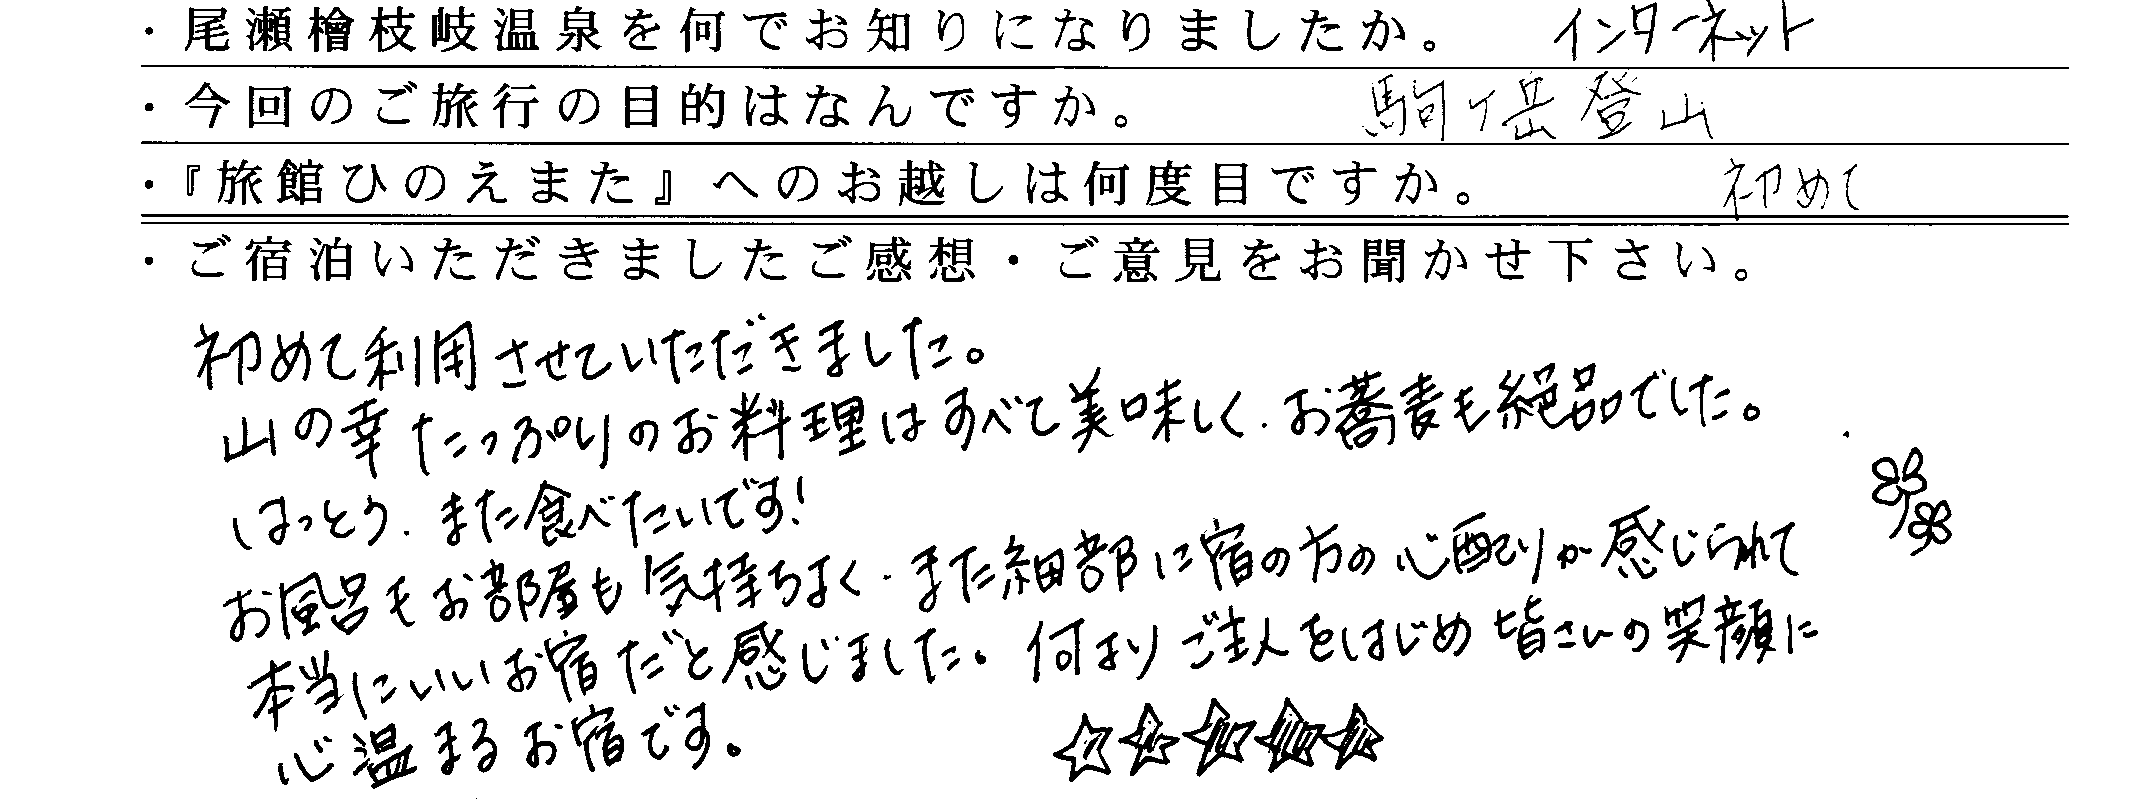 ・尾瀬檜枝岐温泉を何でお知りになりましたか。 インターネット
・今回のご旅行の目的はなんですか。 駒ヶ岳登山
・『旅館ひのえまた』へのお越しは何度目ですか。 初めて
・ご宿泊いただきましたご感想・ご意見をお聞かせ下さい。
初めて利用させていただきました。
山の幸たっぷりのお料理はすべて美味しく、お蕎麦も絶品でした。
はっとう、また食べたいです!
お風呂もお部屋も気持ちよく、また細部に宿の方の心配りが感じられて
本当にいいお宿だと感じました。何よりご主人をはじめ皆さんの笑顔に
心温まるお宿です。